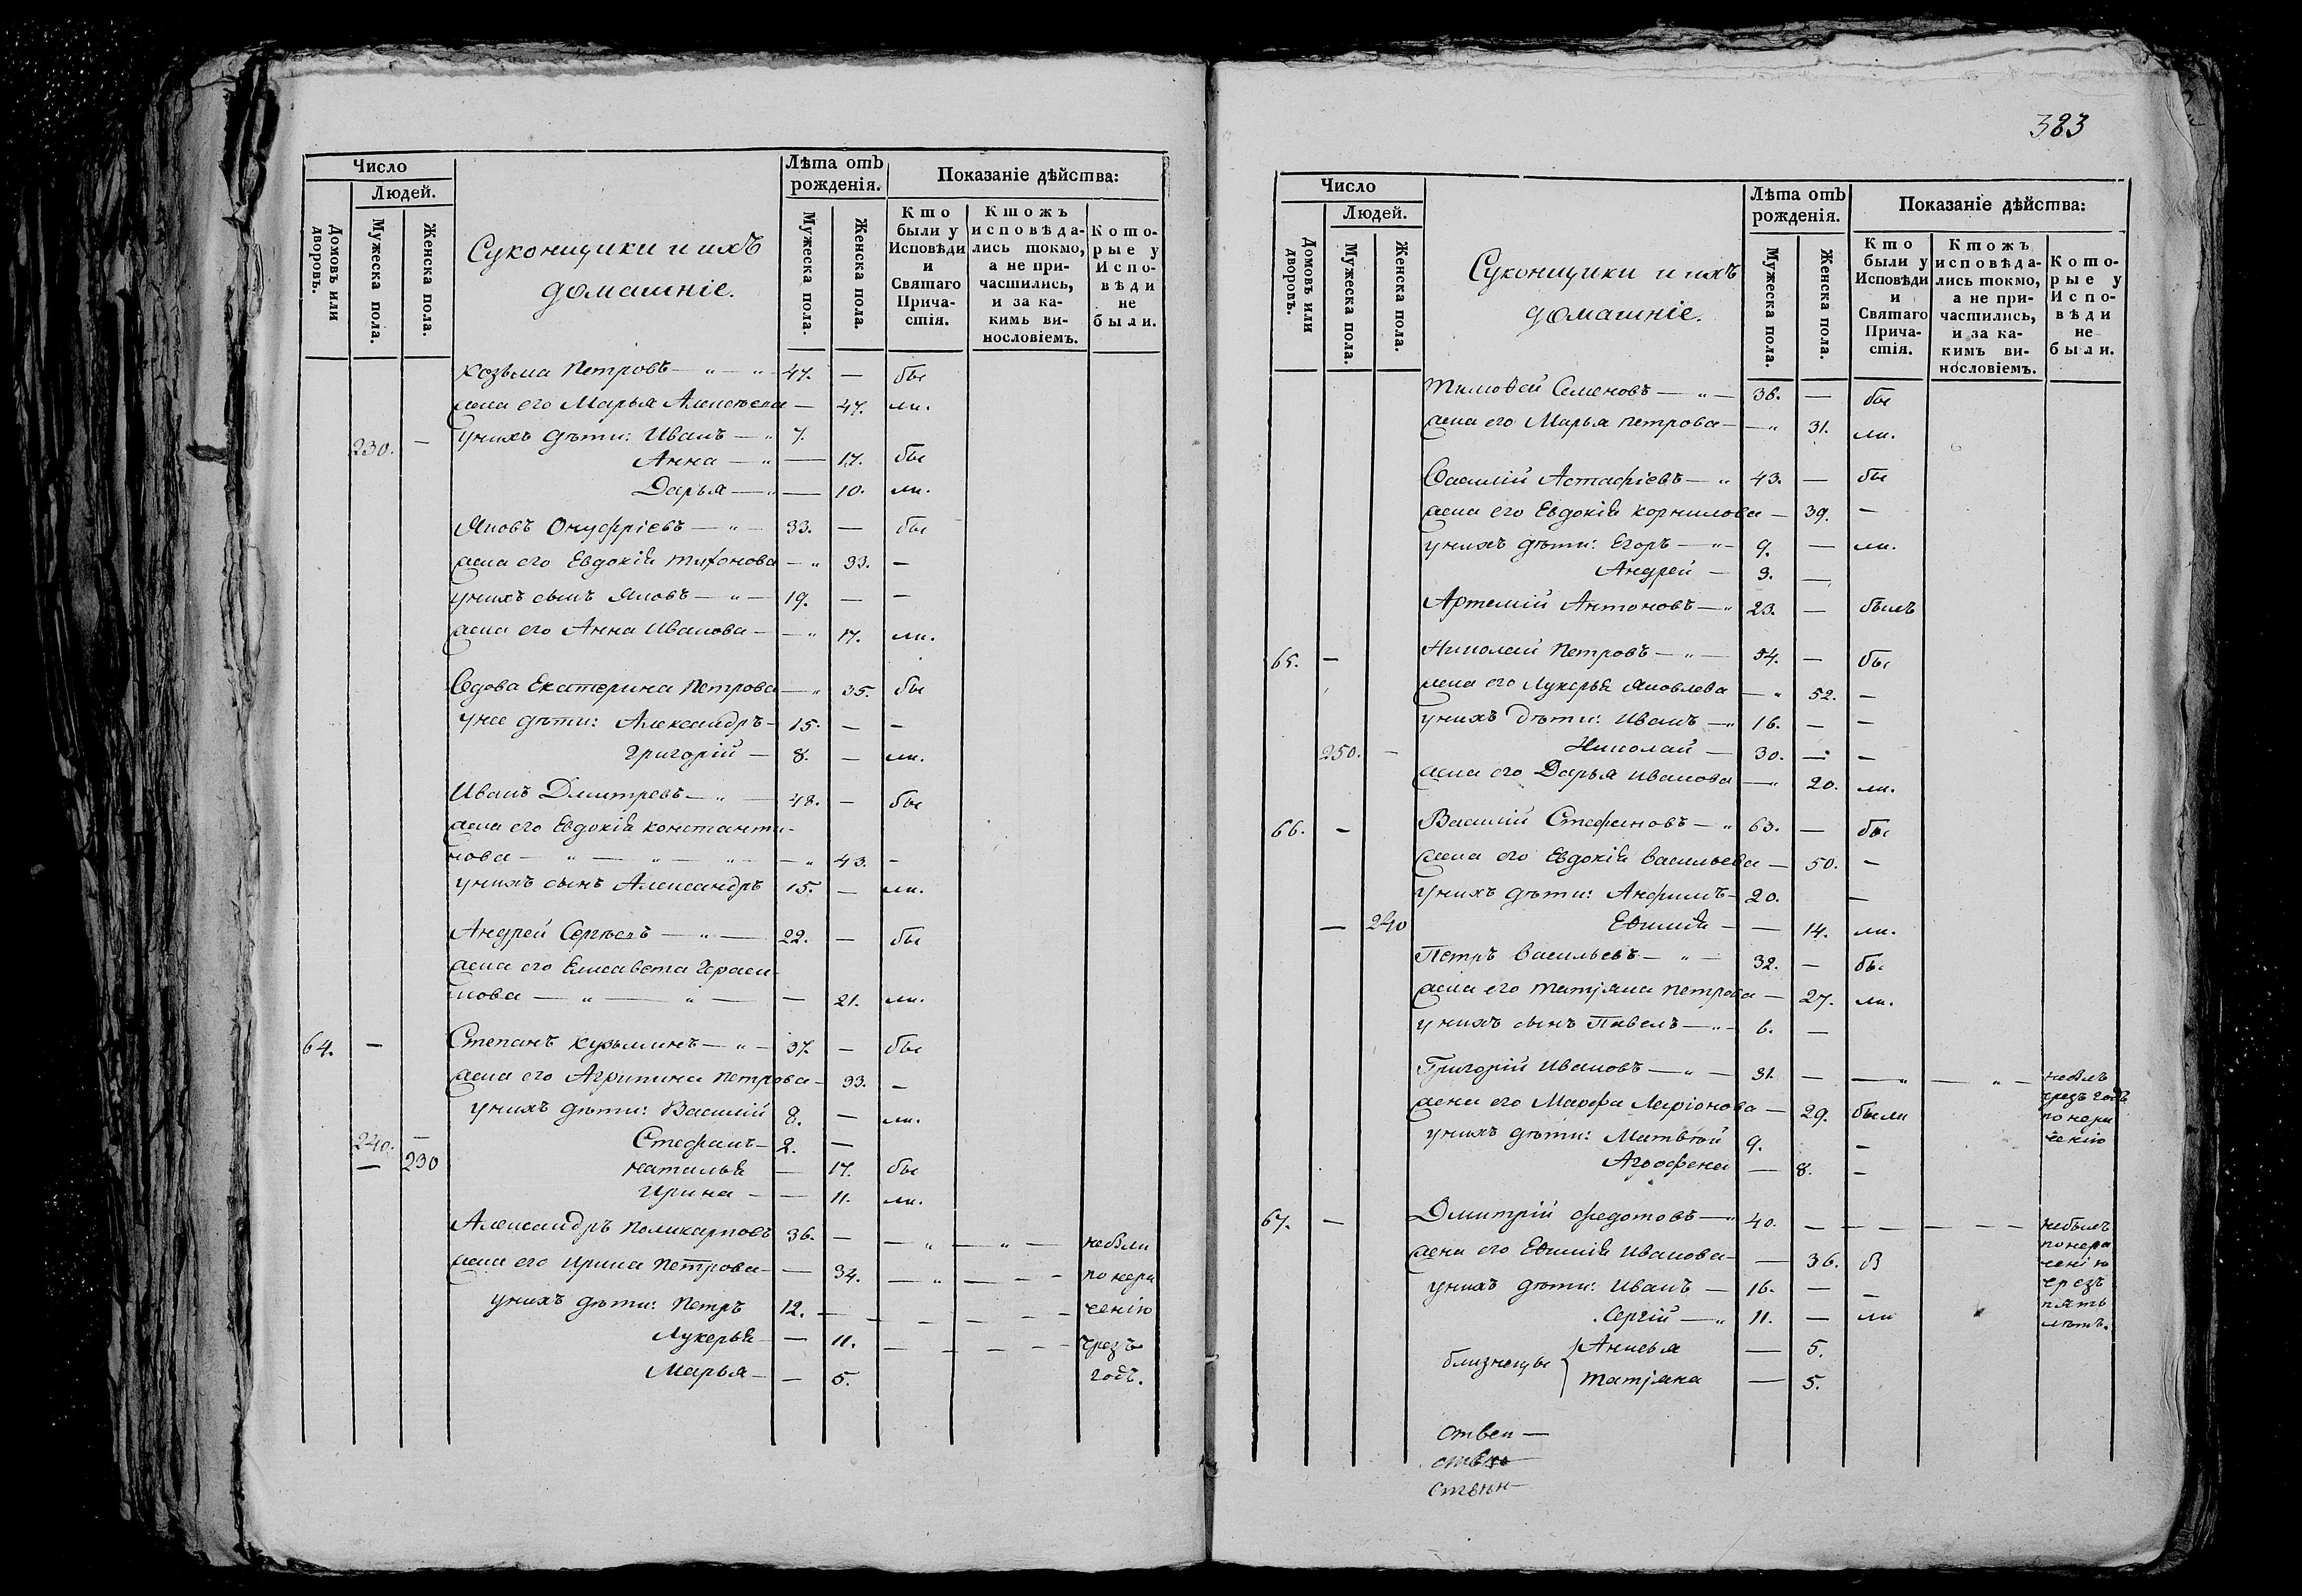 Число
Людей.
Домовъ или дворовъ.
Мужеска пола.
Женска пола.
Суконщики и ихъ
домашніе.
Лѣта отъ
рожденія.
Мужеска пола.
Женска пола.
Показаніе дѣйства:
Кто
были у
Исповѣди
и
Святаго
Прича-
стія.
Ктожъ
исповѣда-
лись токмо,
а не при-
частились,
и за ка-
кимъ ви-
нословіемъ.
Кото-
рые у
Испо-
вѣди
не
были.
Козьма Петровъ — „ — „ 47. — бы
жена его Марья Алексѣева — 47. ли.
230. — унихъ дѣти: Иванъ — „ 7.
Анна — „ — 17. бы
Дарья — „ — 10. ли.
Яковъ Онуфріевъ — „ — 33. — бы
жена его Евдокія Тихонова — „ 33. —
унихъ сынъ Яковъ — „ — 19. — —
жена его Анна Иванова — — „ 17. ли.
Вдова Екатерина Петрова — „ 35. бы
унее дѣти: Александръ — 15. — —
Григорій — 8. — ли.
Иванъ Дмитревъ — „ — 48. — бы
жена его Евдокія Константи-
нова — „ — „ — „ — — „ 43. —
унихъ сынъ Александръ 15. — ли.
Андрей Сергѣевъ — „ — 22. — бы
жена его Елисавета Гераси-
мова — „ — „ — — 21. ли.
64. — Степанъ Кузьминъ — „ — 37. — бы
жена его Агрипина Петрова — 33. —
унихъ дѣти: Василій 8. — ли.
240. — Стефанъ — 2. —
— 230 Наталья — 17. бы
Ирина — — 11. ли.
Александръ Поликарповъ 36. — — „ — „ — небыли
жена его Ирина Петрова — — 34. — „ — — — по нера
унихъ дѣти: Петръ 12. — — — — — — ченію
Лукерья — — 11. — — — — — чрезъ
Марья — — 5. годъ.
383
Число
Людей.
Домовъ или дворовъ.
Мужеска пола.
Женска пола.
Суконщики и ихъ
домашніе.
Лѣта отъ
рожденія.
Мужеска пола.
Женска пола.
Показаніе дѣйства:
Кто
были у
Исповѣди
и
Святаго
Прича-
стія.
Ктожъ
исповѣда-
лись токмо,
а не при-
частились,
и за ка-
кимъ ви-
нословіемъ.
Кото-
рые у
Испо-
вѣди
не
были.
Тимоѳей Семеновъ — „ — 36. — бы
жена его Марья Петрова — — „ 31. ли.
Василій Астафіевъ — „ 43. — бы
жена его Евдокія Корнилова — 39. —
унихъ дѣти: Егоръ — „ — 9. — ли.
Андрей — 3. —
Артемій Антоновъ — „ 23. — былъ
65. — Николай Петровъ — „ — 54. — бы
жена его Лукерья Яковлева — „ 52. —
унихъ дѣти: Иванъ — „ 16. — —
250. — Николай — 30. — —
жена его Дарья Иванова — „ 20. ли.
66. — Василій Стефановъ — „ 63. — бы
жена его Евдокія Васильева — 50. —
унихъ дѣти: Анфимъ — 20. —
— 240 Евѳимія — — 14. ли.
Петръ Васильевъ — „ — 32. — бы
жена его Татьяна Петрова — 27. ли.
унихъ сынъ Павелъ — „ — 6. —
Григорій Ивановъ — „ — 31. — — „ — „ — небылъ
чрезъ годъ
жена его Марфа Ларіонова — 29. были по нера
унихъ дѣти: Матвѣй 9. — ченію
Агрофена — 8. —
67. — Дмитрій Федотовъ — „ 40. — — — — — — небылъ
по нера
жена его Евѳимія Иванова — — 36. б ченію
унихъ дѣти: Иванъ — 16. — — чрезъ
пять
Сергій — „ 11. — ли лѣтъ.
близнецы { Анисья — 5.
Татьяна — 5.